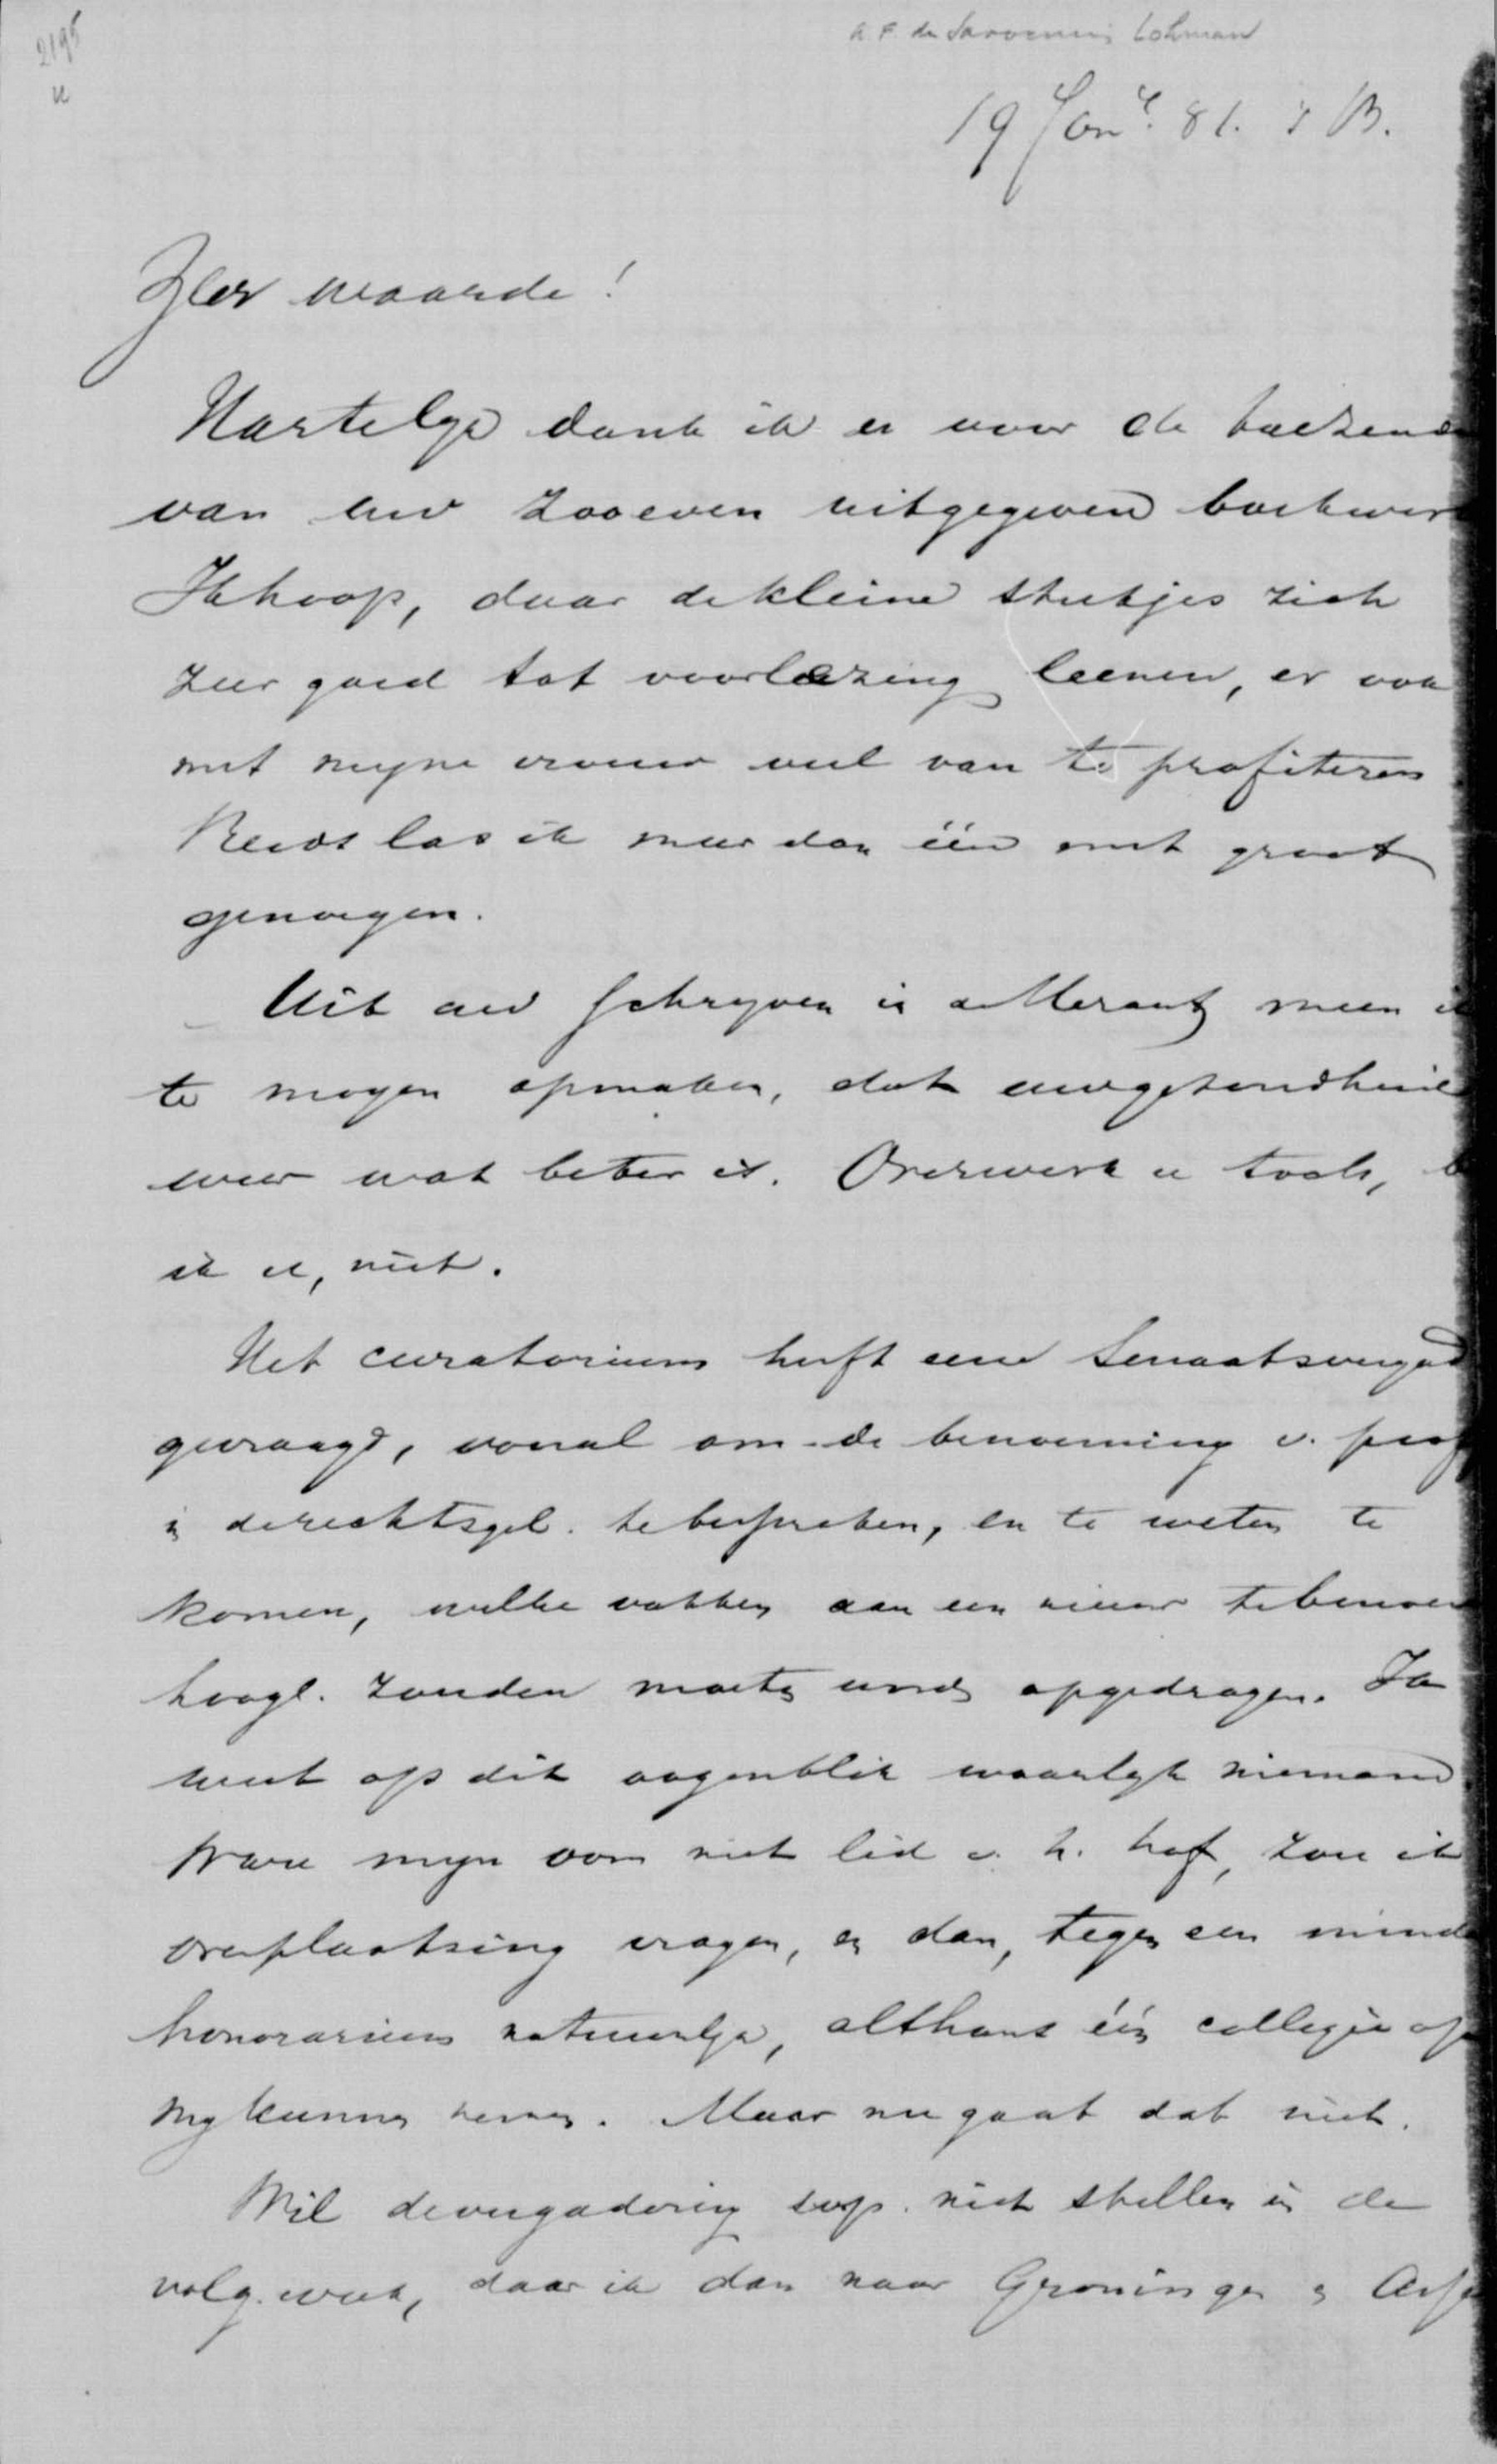 2195
A. F. de Savornin Lohman
19 Jan. 81. 's B.
Zeer waarde!
Hartelijk dank ik u voor de toezend
van uw zooeven uitgegeven boekwerk
Ik hoop, daar de kleine stukjes zich
zeer goed tot voorlezing leenen, er ook
met mijne vrouw veel van te profiteren
Reeds las ik meer dan één met groot
genoegen.
Uit uw schrijven in de Heraut meen ik
te mogen opmaken, dat uw gezondheid
weer wat beter is. Overwerk u toch,
ik u, niet.
Het curatorium heeft eene Senaatsvergad
gevraagd, vooral om de benoeming v. prof
in de rechtsgel. te bespreken, en te weten te
komen, welke vakken aan een nieuw te benoem
hoogl. zouden moeten worden opgedragen. Ik
weet op dit oogenblik waarlijk niemand
Ware mijn oom niet lid v. h. hof, zou ik
overplaatsing vragen, en dan, tegen een minder
honorarium natuurlijk, althans één collegie op
mij kunnen nemen. Maar nu gaat dat niet.
Wil de vergadering svp. niet stellen in de
volg. week, daar ik dan naar Groningen en